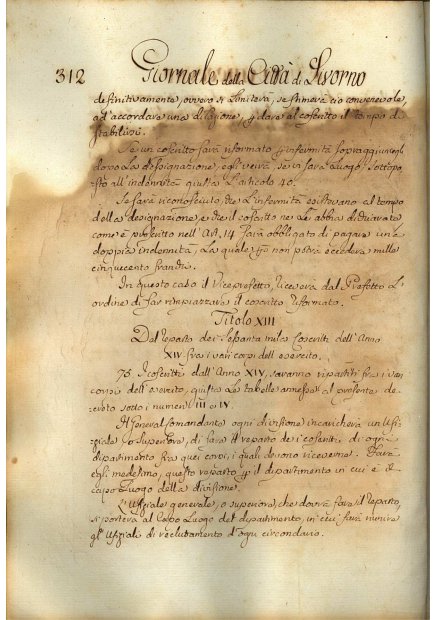 312 Giornale della Città di Livorno
definitivamente, ovvero si limiterà, se stimerà ciò convenevole,
ad accordare una dilazione, p dare al coscritto il tempo di
stabilirsi.
Se un coscritto sarà riformato p infermità sopraggiuntegli
dopo La designazione, egli verrà, se vi sarà Luogo, sottopo-
sto all'indennità giusta L'articolo 40.
Se sarà riconosciuto, che L'infermità esistevano al tempo
della designazione, e che il coscritto ne Le abbia dichiarate
come è prescritto nell'Art. 14 sarà obbligato di pagare una
doppia indennità, La quale però non potrà eccedere mille
cinquecento franchi.
In questo caso il Viceprefetto, riceverà dal Prefetto L'
ordine di far rimpiazzare il coscritto riformato.
Titolo XIII
Del reparto dei sessanta mila Coscritti dell'Anno
XIV fra i varj corpi dell'esercito.
75. I coscritti dall'Anno XIV, saranno repartiti fra i varj
corpi dell'esercito, giusta Le tabelle annesse al presente de-
creto sotto i numeri III e IV.
Il General Comandante ogni divisione incaricherà un Uffi-
ziale o Superiore, di fare il reparto dei coscritti di ogni
dipartimento fra quei corpi, i quali devono riceverne. Farà
egli medesimo, questo reparto p il dipartimento in cui è il
capo Luogo della divisione.
L'Uffiziale generale, o superiore, che dovrà fare il reparto,
si porterà al Capo Luogo del dipartimento, in cui farà riunire
gl'Uffiziali di reclutamento d'ogni circondario.